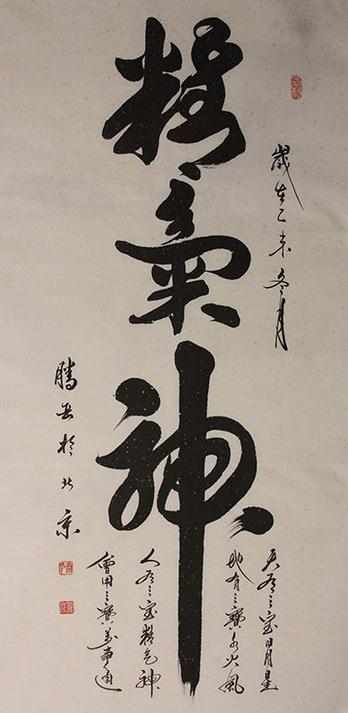 歲在乙未冬月
精氣神
天有三宝日月星
地有三寶水火風
人有三宝精气神
會用三寶萬事通
騰於北京